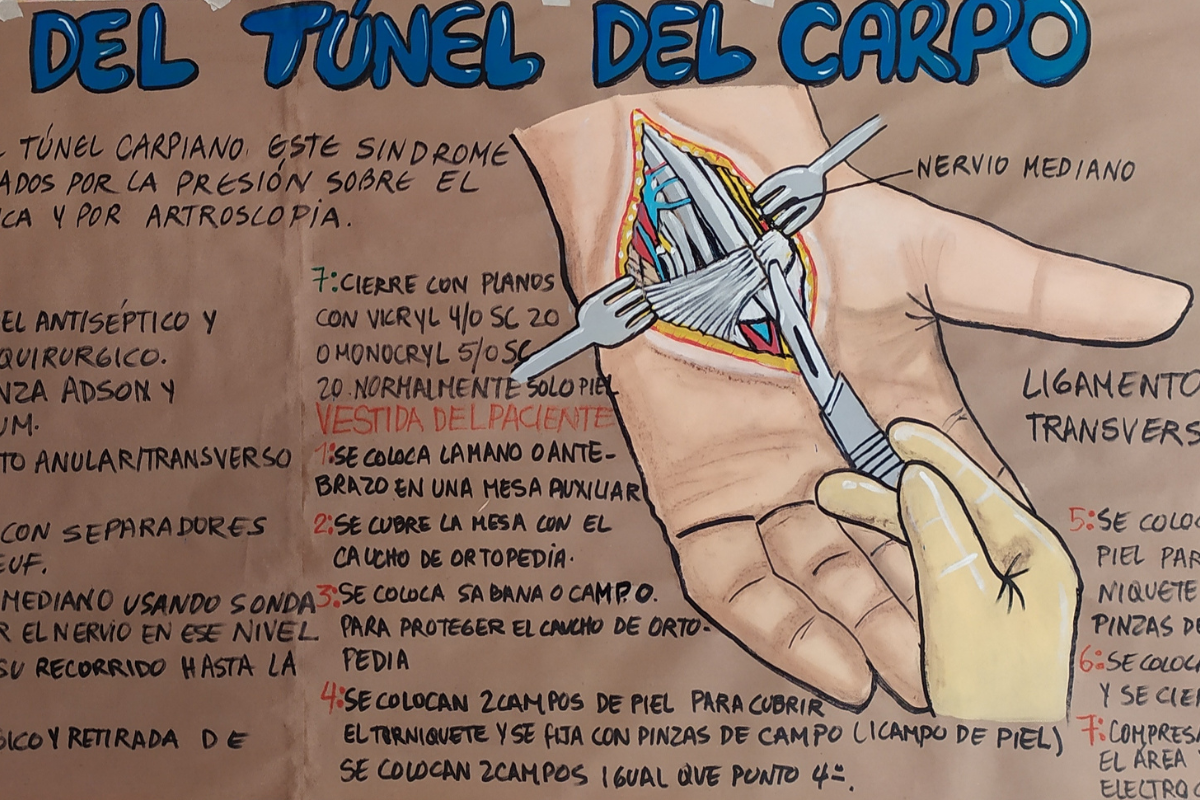 DEL TÚNEL DEL CARPO
TÚNEL CARPIANO. ESTE SINDROME
ADOS POR LA PRESIÓN SOBRE EL
ICA Y POR ARTROSCOPIA.
EL ANTISÉPTICO Y
QUIRURGICO.
NZA ADSON Y
UM.
TO ANULAR/TRANSVERSO
CON SEPARADORES
EUF.
MEDIANO USANDO SONDA
R EL NERVIO EN ESE NIVEL
SU RECORRIDO HASTA LA
GICO Y RETIRADA DE
7: CIERRE CON PLANOS
CON VICRYL 4/0 SC 20
O MONOCRYL 5/0 SC
20. NORMALMENTE SOLO PIEL
VESTIDA DEL PACIENTE
1: SE COLOCA LA MANO O ANTE-
BRAZO EN UNA MESA AUXILIAR
2: SE CUBRE LA MESA CON EL
CAUCHO DE ORTOPEDIA.
3: SE COLOCA SABANA O CAMPO.
PARA PROTEGER EL CAUCHO DE ORTO-
PEDIA
4: SE COLOCAN 2 CAMPOS DE PIEL PARA CUBRIR
EL TORNIQUETE Y SE FIJA CON PINZAS DE CAMPO (1 CAMPO DE PIEL)
SE COLOCAN 2 CAMPOS IGUAL QUE PUNTO 4º.
NERVIO MEDIANO
LIGAMENTO
TRANSVERS
5: SE COLOC
PIEL PAR
NIQUETE
PINZAS DE
6: SE COLOCA
Y SE CIE
7: COMPRESA
EL ÁREA
ELECTRO